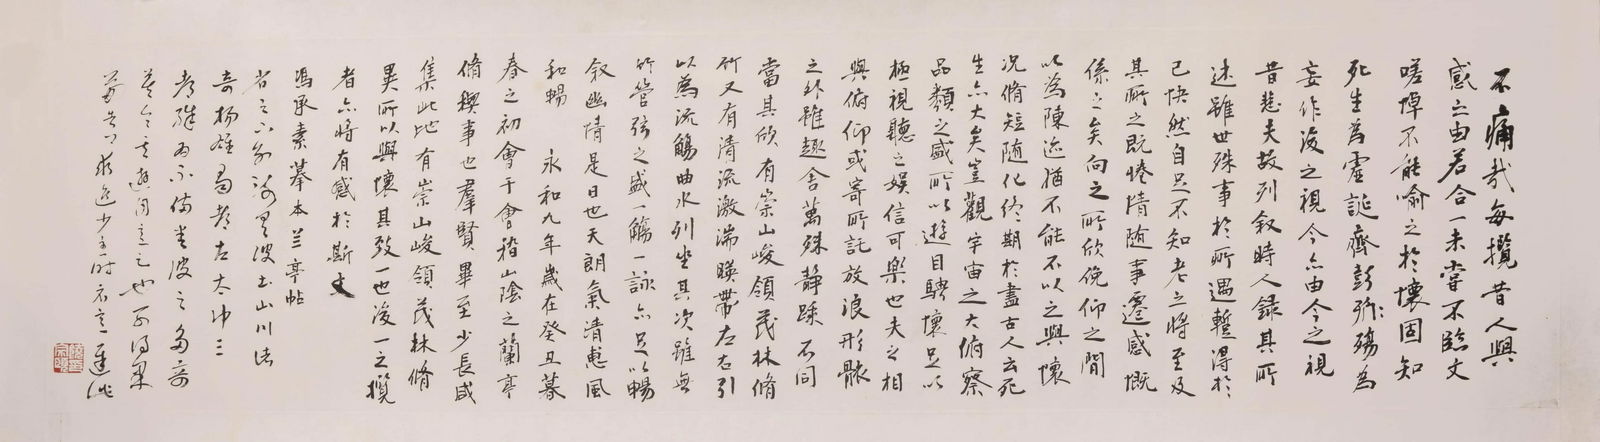 不痛哉每攬昔人興
感之由若合一未嘗不臨文
嗟悼不能喻之於懷固知
死生為虛誕齊彭殤為
妄作後之視今亦由今之視
昔悲夫故列敘時人錄其所
述雖世殊事於所遇蹔得於
己快然自足不知老之將至及
其所之既惓情隨事遷感慨
係之矣向之所欣俛仰之間
以為陳迹猶不能不以之興懷
況脩短隨化終期於盡古人云死
生亦大矣豈觀宇宙之大俯察
品類之盛所以遊目騁懷足以
極視聽之娛信可樂也夫之相
與俯仰或寄所託放浪形骸
之外雖趣舍萬殊靜躁不同
當其欣有崇山峻領茂林脩
竹又有清流激湍暎帶左右引
以為流觴曲水列坐其次雖無
所管弦之盛一觴一詠亦足以暢
敘幽情是日也天朗氣清惠風
和暢 永和九年歲在癸丑暮
春之初會于會稽山陰之蘭亭
脩稧事也羣賢畢至少長咸
集此地有崇山峻領茂林脩
異所以興懷其致一也後之攬
者亦將有感於斯文
馮承素摹本兰亭帖
省足下別疏具彼土山川諸
奇揚雄蜀都左太沖三
都殊為不備悉彼之多奇
益令其遊目意足也可得果
當告卿求迎少 時示意 遲此